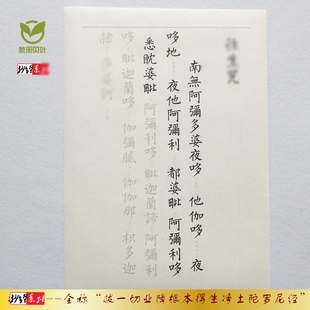 南無阿彌多婆夜哆 他伽哆 夜
哆地 夜他阿彌利 都婆毗 阿彌利哆
悉眈婆毗 阿彌利哆 毗迦蘭諦 阿彌利
哆 毗迦蘭哆 伽彌膩 伽伽那 枳多迦
系列
系列——全称“拔一切业障根本得生净土陀罗尼经”